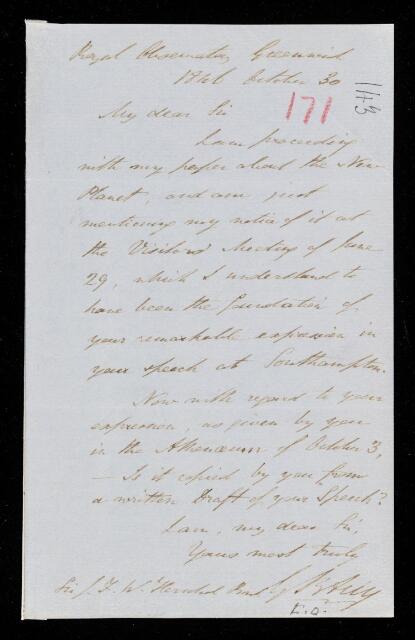 Royal Observatory Greenwich
1846 October 30
171
143
My dear Sir
I am proceeding
with my paper about the New
Planet, and am just
mentioning my notice of it at
the Visitors' Meeting of June
29, which I understand to
have been the foundation of
your remarkable expression in
your speech at Southampton.
Now with regard to your
expression, as given by you
in the Athenæum of October 3,
— Is it copied by you from
a written Draft of your Speech?
I am, my dear Sir,
Yours most truly
G B Airy
Sir J. F. W. Herschel Bart